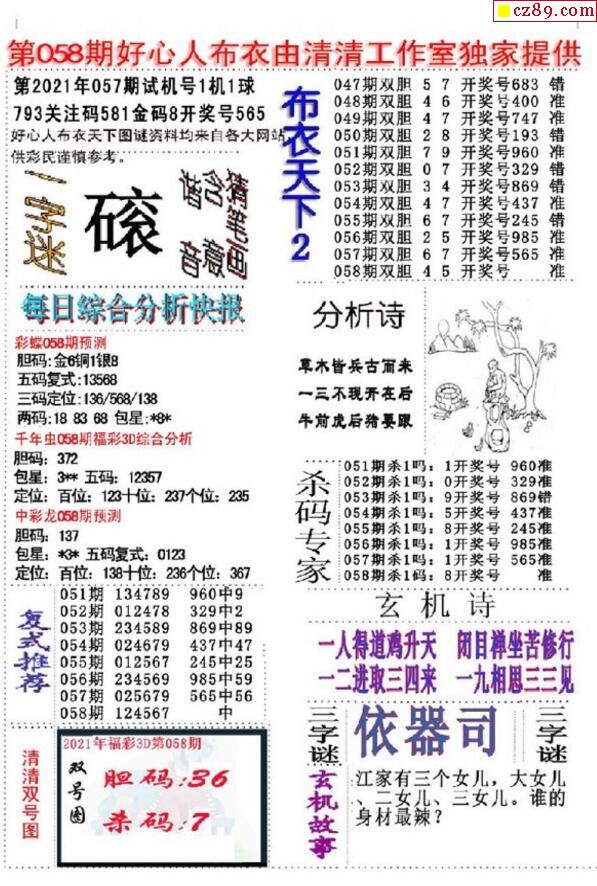 cz89.com
第058期好心人布衣由清清工作室独家提供
第2021年057期试机号1机1球
793关注码581金码8开奖号565
好心人布衣天下图谜资料均来自各大网站
供彩民谨慎参考。
一字谜
磙
猜笔画
含意
谐音
每日综合分析快报
彩蝶058期预测
胆码:金6铜1银8
五码复式:13568
三码定位:136/568/138
两码:18 83 68 包星:*8*
千年虫058期福彩3D综合分析
胆码: 372
包星: 3** 五码: 12357
定位: 百位: 123十位: 237个位: 235
中彩龙058期预测
胆码: 137
包星: *3* 五码复式: 0123
定位: 百位: 138十位: 236个位: 367
复式推荐
051期 134789 960中9
052期 012478 329中2
053期 234589 869中89
054期 024679 437中47
055期 012567 245中25
056期 234569 985中59
057期 025679 565中56
058期 124567 中
清清双号图
2021年福彩3D第058期
双号图
胆码:36
杀码:7
布衣天下2
047期双胆 5 7 开奖号683 错
048期双胆 4 6 开奖号400 准
049期双胆 4 7 开奖号747 准
050期双胆 2 8 开奖号193 错
051期双胆 7 9 开奖号960 准
052期双胆 0 7 开奖号329 错
053期双胆 3 4 开奖号869 错
054期双胆 4 7 开奖号437 准
055期双胆 6 7 开奖号245 错
056期双胆 2 5 开奖号985 准
057期双胆 6 7 开奖号565 准
058期双胆 4 5 开奖号 准
分析诗
草木皆兵古而来
一三不现开在后
牛前虎后猪要跟
杀码专家
051期杀1吗: 1开奖号 960准
052期杀1吗: 0开奖号 329准
053期杀1吗: 9开奖号 869错
054期杀1吗: 5开奖号 437准
055期杀1吗: 8开奖号 245准
056期杀1吗: 1开奖号 985准
057期杀1吗: 1开奖号 565准
058期杀1码: 8开奖号 准
玄机诗
一人得道鸡升天 闭目禅坐苦修行
一二进取三四来 一九相思三三见
三字谜
依器司
三字谜
玄机故事
江家有三个女儿，大女儿
、二女儿、三女儿。谁的
身材最辣？